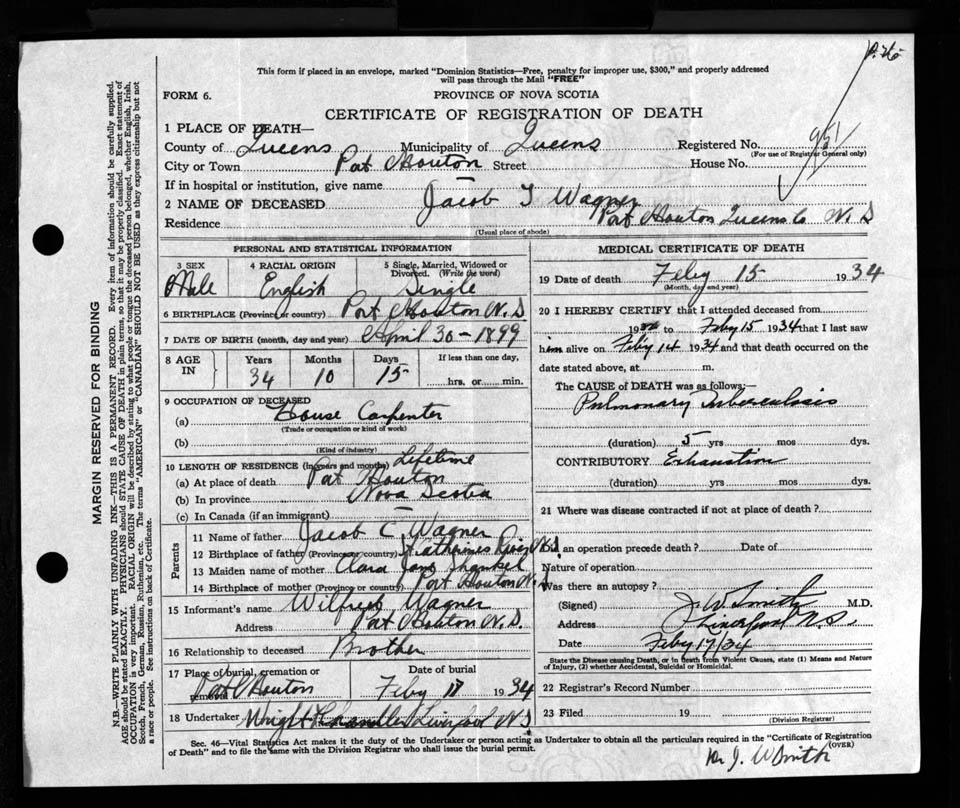 P. 26
This form if placed in an envelope, marked "Dominion Statistics—Free, penalty for improper use, $300," and properly addressed
will pass through the Mail "FREE"
FORM 6.
PROVINCE OF NOVA SCOTIA
CERTIFICATE OF REGISTRATION OF DEATH
1 PLACE OF DEATH—
County of Queens Municipality of Queens Registered No. 951
(For use of Registrar General only)
City or Town Port Mouton Street House No.
If in hospital or institution, give name
2 NAME OF DECEASED Jacob T Wagner
Residence Port Mouton Queens Co N. S
(Usual place of abode)
PERSONAL AND STATISTICAL INFORMATION
3 SEX Male
4 RACIAL ORIGIN English
5 Single, Married, Widowed or Divorced. (Write the word) Single
6 BIRTHPLACE (Province or country) Port Mouton N. S
7 DATE OF BIRTH (month, day and year) April 30 - 1899
8 AGE IN Years 34 Months 10 Days 15 If less than one day, hrs. or min.
9 OCCUPATION OF DECEASED
(a) House Carpenter
(Trade or occupation or kind of work)
(b)
(Kind of industry)
10 LENGTH OF RESIDENCE (in years and months) Lifetime
(a) At place of death Port Mouton
(b) In province Nova Scotia
(c) In Canada (if an immigrant)
Parents
11 Name of father Jacob C Wagner
12 Birthplace of father (Province or country) Katherines River N.S.
13 Maiden name of mother Clara Jane
14 Birthplace of mother (Province or country) Port Mouton N.S
15 Informant's name Wilfred Wagner
Address Port Mouton N. S.
16 Relationship to deceased Brother
17 Place of burial, cremation or removal Port Mouton Date of burial Feby 17 1934
18 Undertaker Wright Chandler Liverpool N S
MEDICAL CERTIFICATE OF DEATH
19 Date of death Feby 15 1934
(Month, day and year)
20 I HEREBY CERTIFY that I attended deceased from
19 to Feby 15 1934 that I last saw
him alive on Feby 14 1934 and that death occurred on the
date stated above, at m.
The CAUSE of DEATH was as follows:
Pulmonary Tuberculosis
(duration) 5 yrs mos dys.
CONTRIBUTORY Exhaustion
(duration) yrs mos dys.
21 Where was disease contracted if not at place of death?
Did an operation precede death? Date of
Nature of operation
Was there an autopsy?
(Signed) J. W. Smith M.D.
Address Liverpool N. S.
Date Feby 17/34
State the Disease causing Death, or in death from Violent Causes, state (1) Means and Nature
of Injury, (2) whether Accidental, Suicidal or Homicidal.
22 Registrar's Record Number
23 Filed 19
(Division Registrar)
Sec. 46—Vital Statistics Act makes it the duty of the Undertaker or person acting as Undertaker to obtain all the particulars required in the "Certificate of Registration
of Death" and to file the same with the Division Registrar who shall issue the burial permit.
(OVER)
Dr J. W Smith
MARGIN RESERVED FOR BINDING
N.B.—WRITE PLAINLY, WITH UNFADING INK—THIS IS A PERMANENT RECORD. Every item of information should be carefully supplied.
AGE should be stated EXACTLY. PHYSICIANS should STATE CAUSE OF DEATH in plain terms, so that it may be properly classified. Exact statement of
OCCUPATION is very important. RACIAL ORIGIN will be described by stating to what people or tongue the deceased person belonged, whether English, Irish,
Scotch, French, German, Russian, Ruthenian, etc. The terms "AMERICAN" or "CANADIAN" SHOULD NOT BE USED as they express citizenship but not
a race or people. See instructions on back of Certificate.